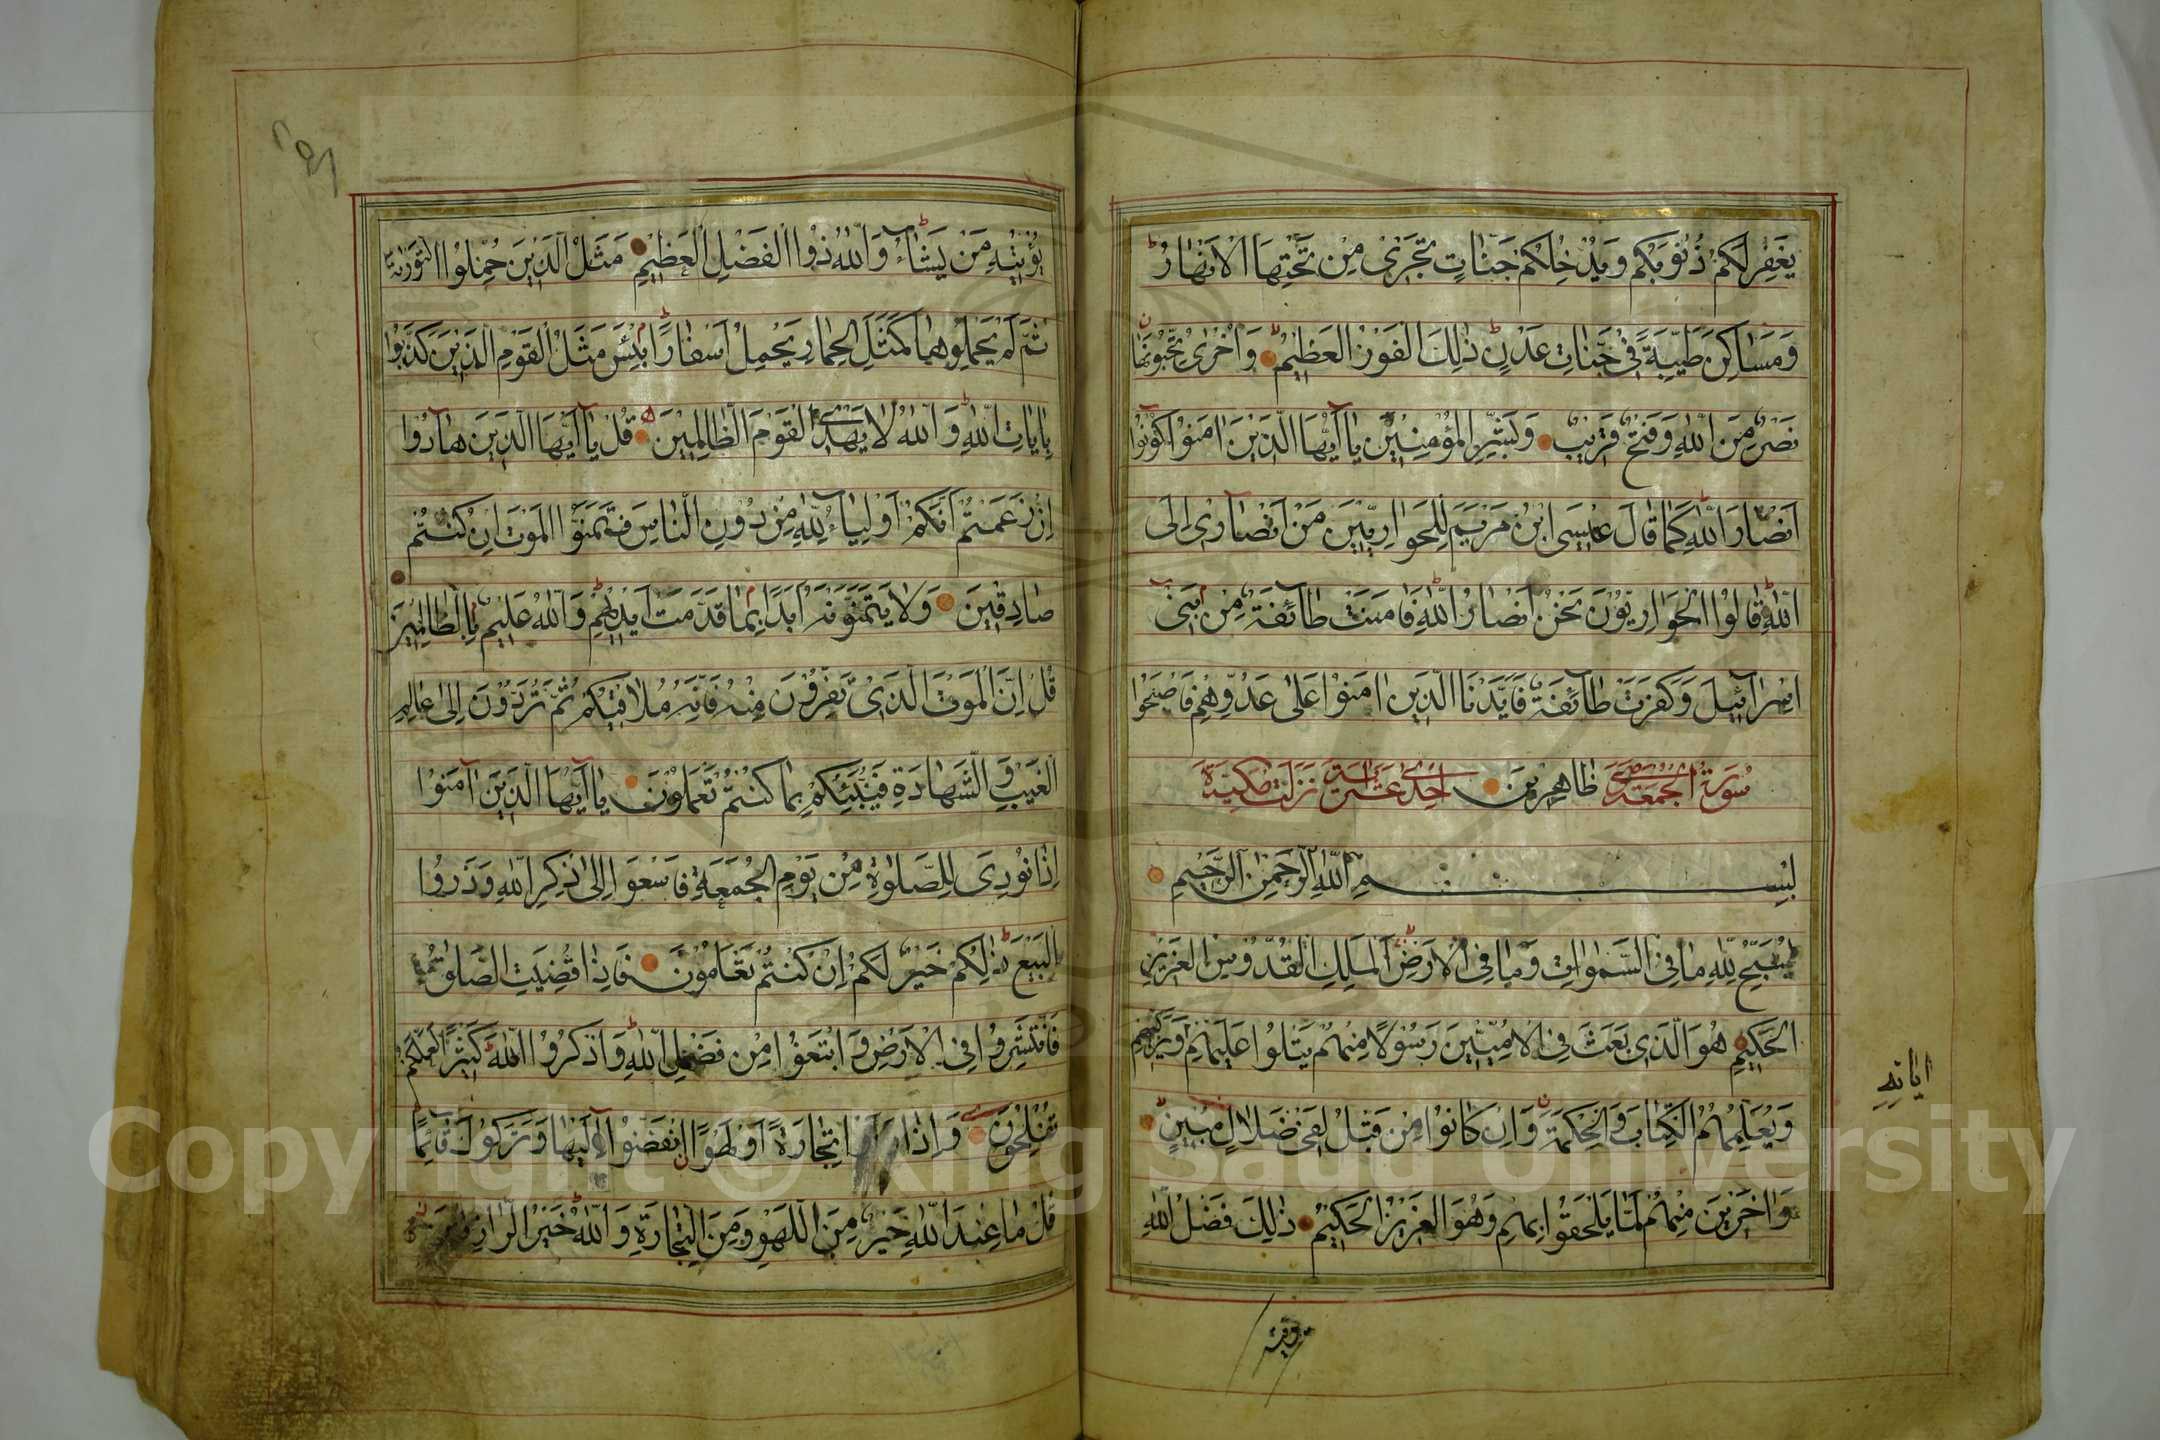 يَغْفِرْ لَكُمْ ذُنُوبَكُمْ وَيُدْخِلْكُمْ جَنَّاتٍ تَجْرِى مِنْ تَحْتِهَا الْاَنْهَارُ ط
وَمَسَاكِنَ طَيِّبَةً فِى جَنَّاتِ عَدْنٍ ط ذٰلِكَ الْفَوْزُ الْعَظِيْمُ ط وَاُخْرٰى تُحِبُّونَهَا
نَصْرٌ مِنَ اللّٰهِ وَفَتْحٌ قَرِيْبٌ وَبَشِّرِ الْمُؤْمِنِيْنَ يَا اَيُّهَا الَّذِيْنَ اٰمَنُوْا كُوْنُوْا
اَنْصَارَ اللّٰهِ كَمَا قَالَ عِيْسَى ابْنُ مَرْيَمَ لِلْحَوَارِيِّيْنَ مَنْ اَنْصَارِىْ اِلَى
اللّٰهِ قَالُوا الْحَوَارِيُّوْنَ نَحْنُ اَنْصَارُ اللّٰهِ فَاٰمَنَتْ طَآئِفَةٌ مِنْ بَنِىْ
اِسْرَآئِيْلَ وَكَفَرَتْ طَآئِفَةٌ فَاَيَّدْنَا الَّذِيْنَ اٰمَنُوْا عَلٰى عَدُوِّهِمْ فَاَصْبَحُوْا
سُوْرَةُ الْجُمُعَةِ ظَاهِرِيْنَ اِحْدٰى عَشَرَ اٰيَةً نَزَلَتْ مَكِّيَّةٌ
بِسْمِ اللّٰهِ الرَّحْمٰنِ الرَّحِيْمِ
يُسَبِّحُ لِلّٰهِ مَا فِى السَّمٰوَاتِ وَمَا فِى الْاَرْضِ الْمَلِكِ الْقُدُّوْسِ الْعَزِيْزِ
الْحَكِيْمِ هُوَ الَّذِىْ بَعَثَ فِى الْاُمِّيِّيْنَ رَسُوْلًا مِنْهُمْ يَتْلُوْا عَلَيْهِمْ وَيُزَكِّيْهِمْ
اٰيَاتِهِ
وَيُعَلِّمُهُمُ الْكِتَابَ وَالْحِكْمَةَ وَاِنْ كَانُوْا مِنْ قَبْلُ لَفِىْ ضَلَالٍ مُبِيْنٍ ط
وَاٰخَرِيْنَ مِنْهُمْ لَمَّا يَلْحَقُوْا بِهِمْ وَهُوَ الْعَزِيْزُ الْحَكِيْمُ ذٰلِكَ فَضْلُ اللّٰهِ
يُؤْتِيْهِ مَنْ يَشَآءُ ط وَاللّٰهُ ذُوا الْفَضْلِ الْعَظِيْمِ مَثَلُ الَّذِيْنَ حُمِّلُوا التَّوْرٰيةَ
ثُمَّ لَمْ يَحْمِلُوْهَا كَمَثَلِ الْحِمَارِ يَحْمِلُ اَسْفَارًا ط بِئْسَ مَثَلُ الْقَوْمِ الَّذِيْنَ كَذَّبُوْا
بِاٰيَاتِ اللّٰهِ ط وَاللّٰهُ لَا يَهْدِى الْقَوْمَ الظَّالِمِيْنَ قُلْ يَا اَيُّهَا الَّذِيْنَ هَادُوْا
اِنْ زَعَمْتُمْ اَنَّكُمْ اَوْلِيَآءُ لِلّٰهِ مِنْ دُوْنِ النَّاسِ فَتَمَنَّوُا الْمَوْتَ اِنْ كُنْتُمْ
صَادِقِيْنَ وَلَا يَتَمَنَّوْنَهُ اَبَدًا بِمَا قَدَّمَتْ اَيْدِيْهِمْ ط وَاللّٰهُ عَلِيْمٌ بِالظَّالِمِيْنَ
قُلْ اِنَّ الْمَوْتَ الَّذِىْ تَفِرُّوْنَ مِنْهُ فَاِنَّهُ مُلَاقِيْكُمْ ثُمَّ تُرَدُّوْنَ اِلٰى عَالِمِ
الْغَيْبِ وَالشَّهَادَةِ فَيُنَبِّئُكُمْ بِمَا كُنْتُمْ تَعْمَلُوْنَ يَا اَيُّهَا الَّذِيْنَ اٰمَنُوْا
اِذَا نُوْدِىَ لِلصَّلٰوةِ مِنْ يَوْمِ الْجُمُعَةِ فَاسْعَوْا اِلٰى ذِكْرِ اللّٰهِ وَذَرُوْا
الْبَيْعَ ط ذٰلِكُمْ خَيْرٌ لَكُمْ اِنْ كُنْتُمْ تَعْلَمُوْنَ فَاِذَا قُضِيَتِ الصَّلٰوةُ
فَانْتَشِرُوْا فِى الْاَرْضِ وَابْتَغُوْا مِنْ فَضْلِ اللّٰهِ وَاذْكُرُوا اللّٰهَ كَثِيْرًا لَعَلَّكُمْ
تُفْلِحُوْنَ وَاِذَا رَاَوْا تِجَارَةً اَوْ لَهْوًا انْفَضُّوْا اِلَيْهَا وَتَرَكُوْكَ قَآئِمًا
قُلْ مَا عِنْدَ اللّٰهِ خَيْرٌ مِنَ اللَّهْوِ وَمِنَ التِّجَارَةِ وَاللّٰهُ خَيْرُ الرَّازِقِيْنَ
Copyright © King Saud University